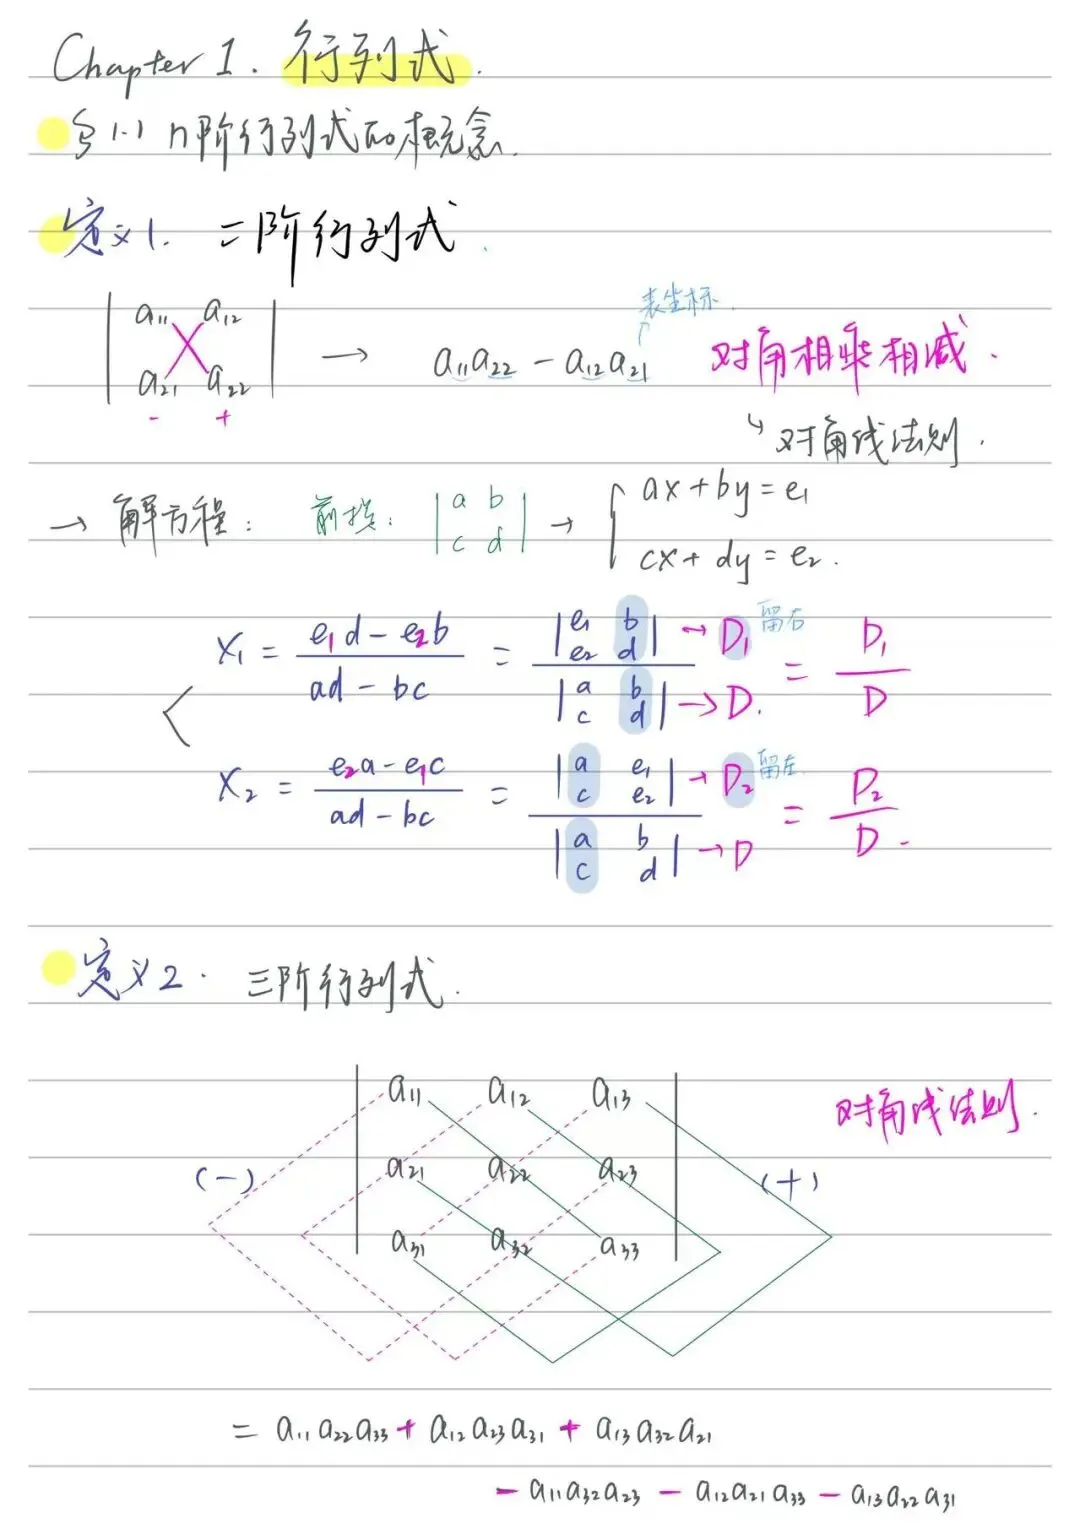 Chapter 1. 行列式.
§1.1 n阶行列式的概念.
定义1. 二阶行列式.
a₁₁ a₁₂
a₂₁ a₂₂
- +
→ a₁₁a₂₂ - a₁₂a₂₁
表坐标.
对角相乘相减.
↳ 对角线法则.
→ 解方程: 前提: |a b| → { ax + by = e₁
|c d| cx + dy = e₂.
X₁ = (e₁d - e₂b)/(ad - bc) = |e₁ b; e₂ d| → D₁ 留右 / |a b; c d| → D. = D₁/D
X₂ = (e₂a - e₁c)/(ad - bc) = |a e₁; c e₂| → D₂ 留左 / |a b; c d| → D = D₂/D.
定义2. 三阶行列式.
a₁₁ a₁₂ a₁₃
对角线法则.
(-) a₂₁ a₂₂ a₂₃ (+)
a₃₁ a₃₂ a₃₃
= a₁₁a₂₂a₃₃ + a₁₂a₂₃a₃₁ + a₁₃a₃₂a₂₁
- a₁₁a₃₂a₂₃ - a₁₂a₂₁a₃₃ - a₁₃a₂₂a₃₁